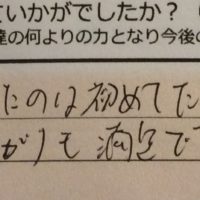 ていかがでしたか?
達の何よりの力となり今後の
たのは初めてた
がりも満足で